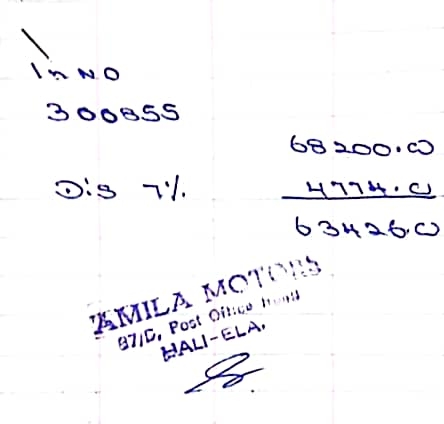 In NO
300855
68200.00
Dis 7% 4774.00
63426.00
AMILA MOTORS
97/C, Post Office Road
HALI-ELA.